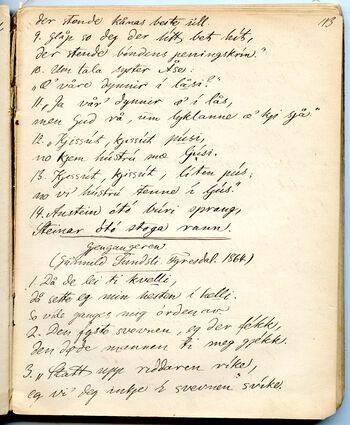 der stende kånas beste sill.
113
9. Gløp so deg der hit, bet hit,
der stende bóndens peningskrin."
10. Um tala syster Åse:
"Æ våre dynnir i låsi?"
11. "Ja vår' dynnir æ i lås,
men Gud rå, um lyklanne æ
12. "Kjissút, kjissút, púsi,
no kjem hústrú mæ ljúsi.
13. Kjissút, kjissút, liten pús,
no vi hústrú tenne i ljús."
14. Austein ótó búri sprang,
Steinar ótó stoga rann.
Gengangeren
(Gunnuld Tundsli. Fyresdal. 1864.)
1. Då de lei ti kvelli,
då sette eg min hesten i helli.
So vide ganges meg orden av
2. Den fyste svevnen, eg der fekk,
den døde mannen ti meg gjekk.
3. "Statt upp riddaren rike,
eg vi' deg inkje i svevnen svike.